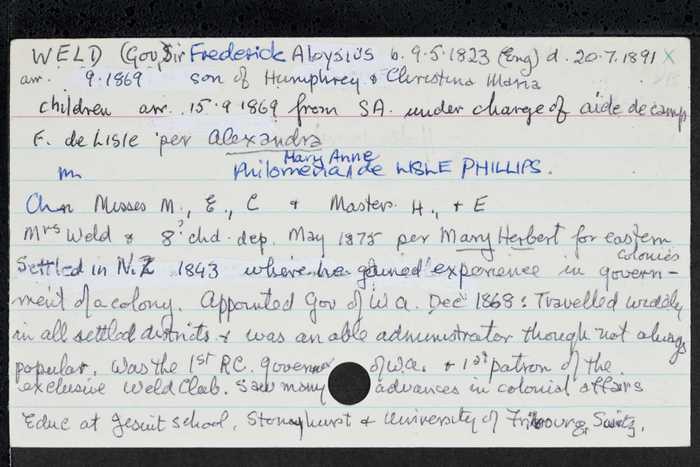 WELD (Gov) Sir Frederick Aloysius b. 9.5.1823 (Eng) d. 20.7.1891 x
arr. 9.1869 son of Humphrey & Christina Maria
children arr. 15.9.1869 from SA. under charge of aide de camp
F. de Lisle per Alexandra
m Philomena Mary Anne de LISLE PHILLIPS.
Chn Misses M., E., C & Masters H., & E
Mrs Weld & 8? chd. dep. May 1875 per Mary Herbert for eastern colonies
Settled in N.Z 1843 where he gained experience in govern-
ment of a colony. Appointed Gov of W.A. Dec 1868. Travelled widely
in all settled districts & was an able administrator though not always
popular. Was the 1st R.C. Governor of W.A. & 1st patron of the
exclusive Weld Club. Saw many advances in colonial affairs
Educ at Jesuit School, Stonyhurst & University of Fribourg, Switz.